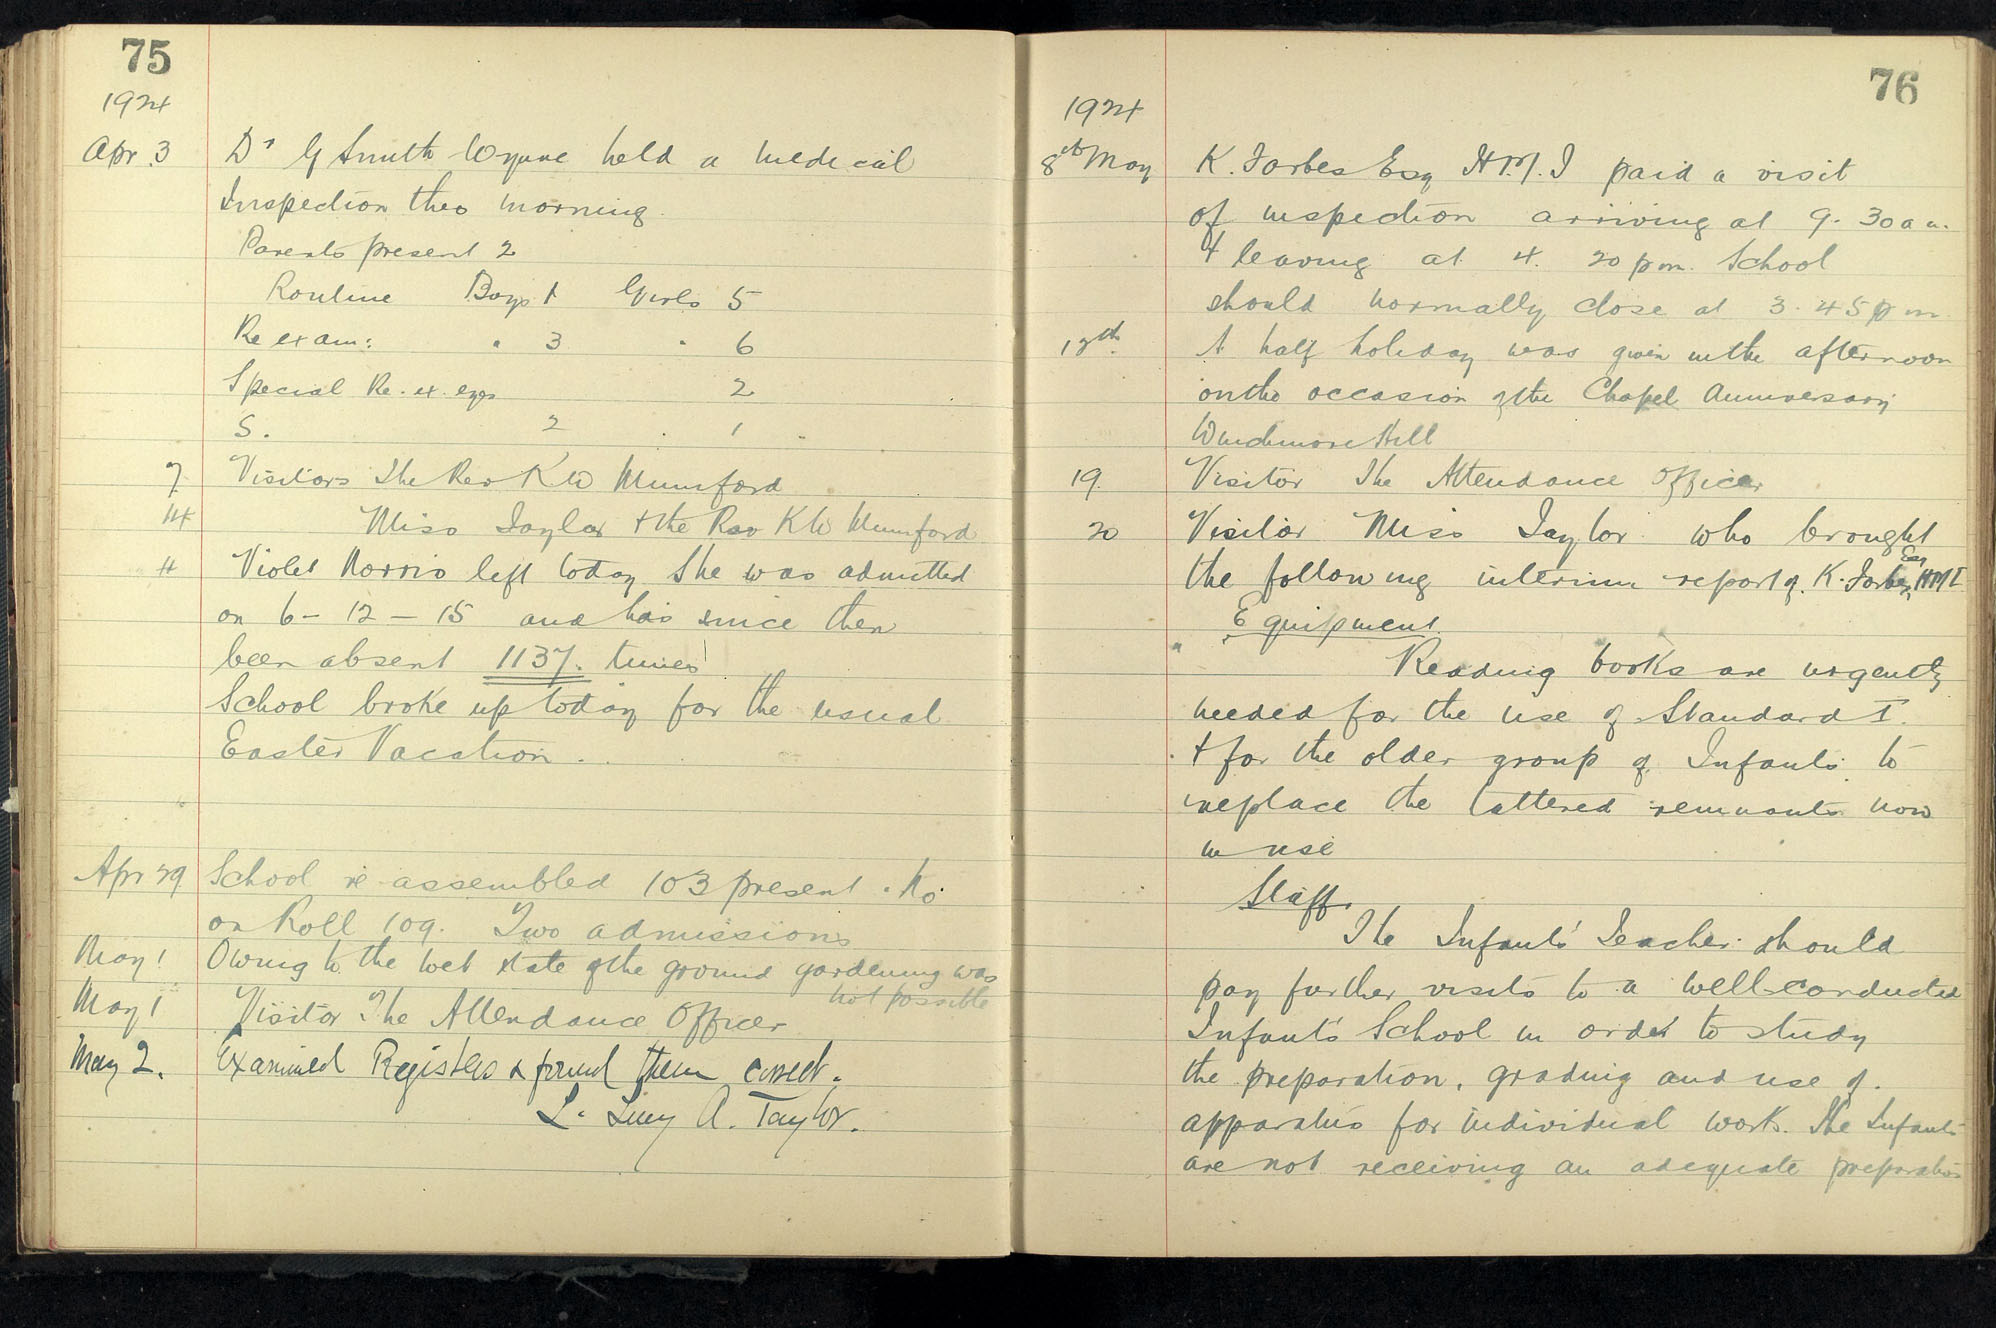 75
1924
Apr. 3 Dr G Smith Wynne held a medical
Inspection this morning.
Parents present 2
Routine Boys 1 Girls 5
Re exam: " 3 " 6
Special Re. ex. eyes 2
S. 2 1
7 Visitors The Rev K W Mumford
14 Miss Taylor & the Rev K W Mumford
" Violet Norris left today. She was admitted
on 6 - 12 - 15 and has since then
been absent 1137. times!
School broke up today for the usual
Easter Vacation.
Apr 29 School re-assembled 103 present. No
on Roll 109. Two admissions
May 1 Owing to the wet state of the ground gardening was
not possible
May 1 Visitor The Attendance Officer
May 2. Examined Registers & found them correct.
L. Lucy A. Taylor.
76
1924
8th May K. Forbes Esq H.M.I paid a visit
of inspection arriving at 9. 30 a m.
& leaving at 4. 20 pm. School
should normally close at 3. 45 pm
A half holiday was given in the afternoon
on the occasion of the Chapel Anniversary
Windmore Hill
19. Visitor The Attendance Officer
20 Visitor Miss Taylor who brought
the following interim report of K. Forbes Esq HMI.
Equipment.
Reading books are urgently
needed for the use of Standard I.
& for the older group of Infants to
replace the tattered remnants now
in use
Staff.
The Infants' Teacher should
pay further visits to a well-conducted
Infants School in order to study
the preparation, grading and use of
apparatus for individual work. The Infants
are not receiving an adequate preparation